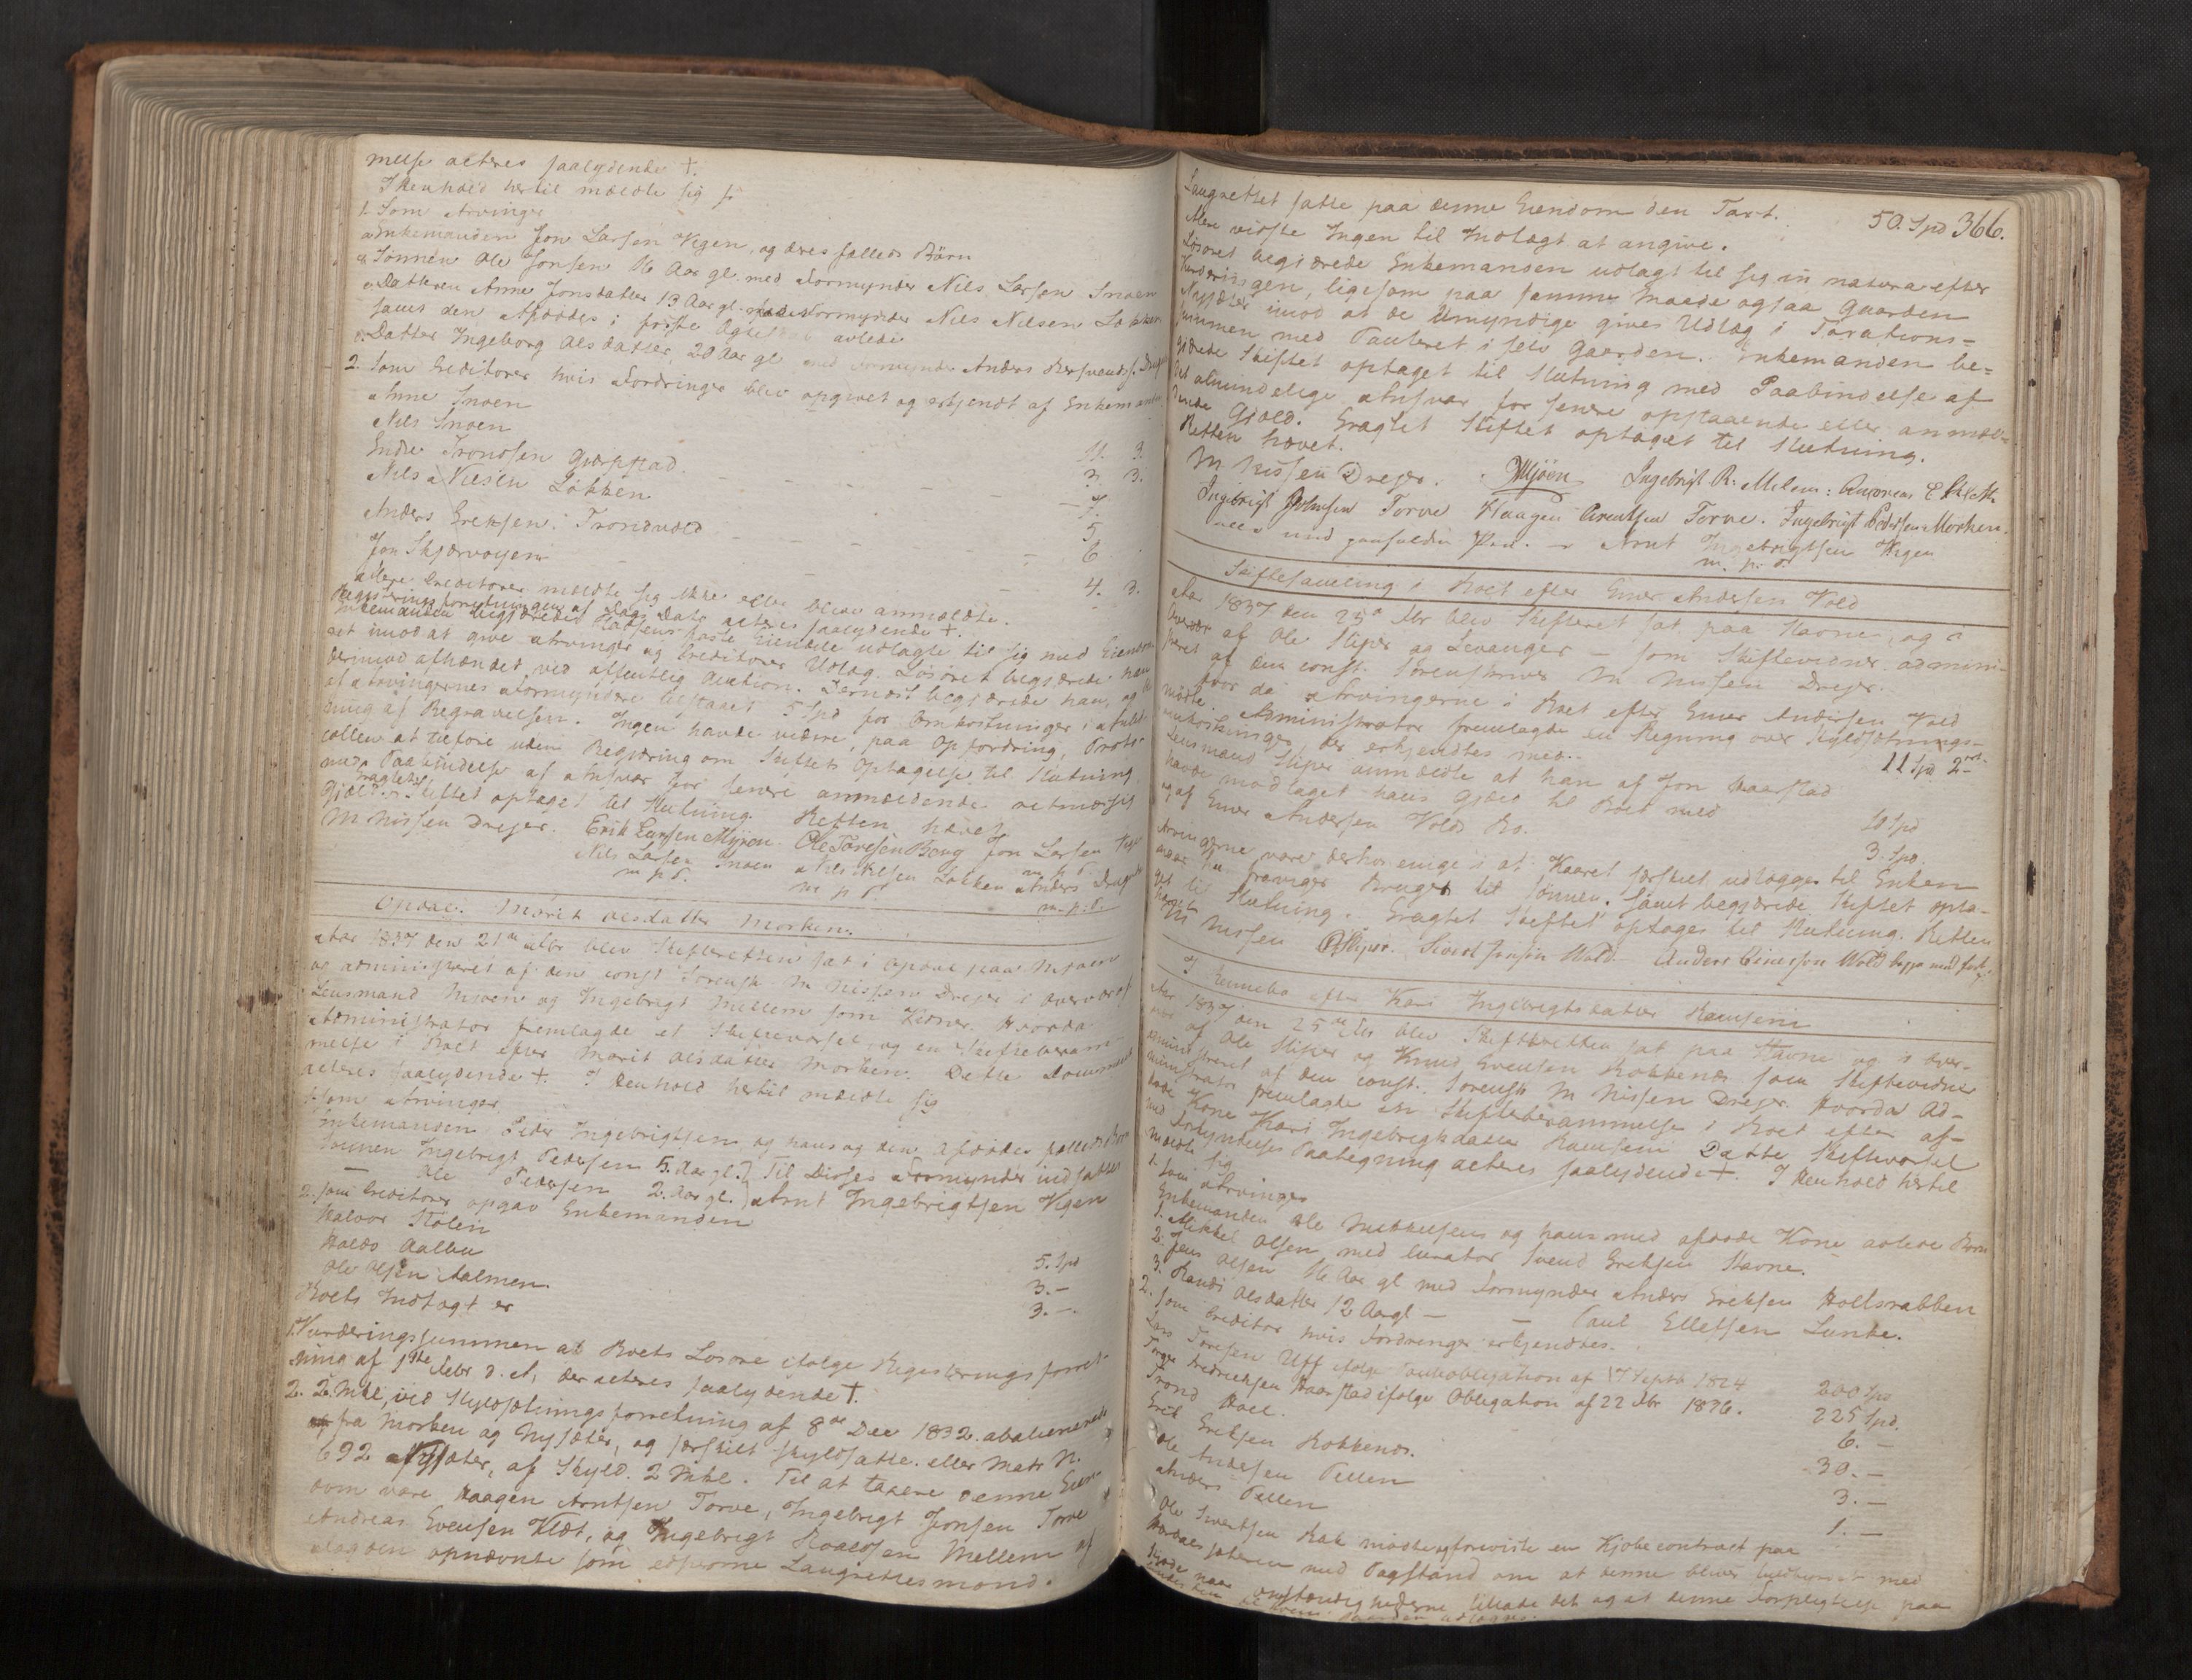 melse acteres saalydende †.
I Henhold hertil meldte sig
1. Som Arvinger
a. Enkemanden Jon Larsen Vigen, og deres fælleds Børn
b. Sønnen Ole Jonsen 16 Aar gl. med Formynder Nils Larsen Snoen
c. Datteren Anne Jonsdatter 13 Aar gl. Formynder Nils Nilsen Løkken
samt den Afdødes i første Ægteskab avlede
d. Datter Ingeborg Olsdatter, 20 Aar gl med Formynder Anders
2. Som Creditorer hvis Fordringer blev opgivet og erkjendt af Enkemanden
Anne Snoen
Nils Snoen
Endre Tronsen Gjerpstad. 11. 3.
Nils Nilsen Løkken 3. 3.
7.
Anders Ereksen Trondvold 5.
Jon Skjærvøyen 6
4. 3.
Flere Creditorer meldte sig ikke eller bleve anmeldte.
Registreringsforretningen af Dags Dato acteres saalydende †.
Enkemanden begjærede Stedsens faste Eiendele udlagte til sig med Eiendoms
ret imod at give Arvinger og Creditorer Udlæg. Løsøret begjærede han
derimod afhændet ved offentlig Auction. Dernæst begjærede han, og
af Arvingernes Formyndere bestaaet 5 Spd for Omkostninger i Anled-
ning af Begravelsen. Ingen havde videre, paa Opfordring, Proto-
collen at tilføie uden Begjæring om Skiftets Optagelse til Slutning
med Paabindelse af Ansvar for senere anmeldende
Gjæld. Eragtet: Skiftet optaget til Slutning. Retten hævet.
M Nissen Dreyer. Erik Larsen Mjøen. Ole Toresen Boug Jon Larsen Vigen
Nils Larsen Snoen Nils Nilsen Løkken Anders
m p P. m p P. m. p. P.
Opdal. Marit Olsdatter Morken.
Aar 1837 den 21de Octbr blev Skifteretten sat i Opdal paa Mjoen
og administreret af den const Sorensk. M Nissen Dreyer i Overvær af
Lensmand Mjoen og Ingebrigt Mellem som Vidner. Hvorda
Administrator fremlagde et Skiftevarsel, og en Skifteberam-
melse i Boet efter Marit Olsdatter Morken. Dette Document
acteres saalydende †. I Henhold hertil meldte sig
1. som Arvinger
Enkemanden Peder Ingebrigtsen og hans og den Afdødes fælleds Børn
Sønnen Ingebrigt Pedersen 5. Aar gl. Til Disses Formynder indsattes
— Ole Pedersen 2. Aar gl. Arnt Ingebrigtsen Vigen
2. som Creditorer opgav Enkemanden
Halvor Stølen 5. Spd
Haldo Aalbu 3. –
Ole Olsen Aalmen. 3. –.
Boets Indtægt er
1. Vurderingssummen at Boets Løsøre ifølge Registreringsforret-
ning af 1ste Febr d. A, der acteres saalydende †.
2. 2 Mkl, ved Skyldsætningsforretning af 8de Dec 1832. abalienerede
fra Morken og Nysæter, og særskilt skyldsatte. eller Matr N.
692 Nysæter, af Skyld. 2 Mkl. Til at taxere denne Eien-
dom vare Haagen Arntsen Torve, Ingebrigt Jonsen Torve
Andreas Evensen Klæt, og Ingebrigt Haldosen Mellem af
opnævnte som edsvorne Laugrettesmænd.
366.
Laugrettet satte paa denne Eiendom den Taxt. 50. Spd
Flere vidste Ingen til Indtægt at angive.
Løsøret begjærede Enkemanden udlagt til sig in natura efter
Vurderingen, ligesom paa samme Maade ogsaa Gaarden
Nysæter imod at de Umyndige gives Udlæg i Taxations-
summen med Panteret i selv Gaarden. Enkemanden be-
gjærede Skiftet optaget til Slutning med Paabindelse af
det almindelige Ansvar for senere opstaaende eller anmel-
dende Gjæld. Eragtet Skiftet optaget til Slutning.
Retten hævet.
M Nissen Dreyer. Mjöen Ingebrigt R. Melem: Andreas E Klæt
Ingebrigt Johnsen Torve Haagen Arentsen Torve. Ingebrigt Pedersen Morken.
med paaholden Pen. – Arnt Ingebrigtsen Vigen
m. p. P.
Skiftesamling i Boet efter Einer Andersen Vold
Aar 1837 den 25de Octbr blev Skifteret sat paa Stavne, og i
Overvær af Ole Skjær og Levanger – som Skiftevidner admini-
streret af den const. Sorenskriver M Nissen Dreyer.
Hvor da Arvingerne i Boet efter Einer Andersen Vold
mødte. Administrator fremlagde en Regning over Skyldsætnings-
omkostninger, der erkjendtes med. 11 Spd 2
Lensmand Skjær anmeldte at han af Jon Haarstad
havde modtaget hans Gjæld til Boet med 10 Spd
og af Einer Andersen Volds Bo. 3. Spd.
Arvingerne vare derhos enige i at Kaaret særskilt udlægges til Enken
naar hun fraviger Bruget til Sønnen. Samt begjærede Skiftet opta-
get til Slutning. Eragtet Skiftet optages til Slutning. Retten
hævet.
M Nissen O Skjær. Sivert Jonsen Wold Anders Einersen Wold
I Rennebo efter Kari Ingebrigtsdatter Ramsem
Aar 1837 den 25de Octbr blev Skifteretten sat paa Stavne og i Over-
vær af Ole Skjær og Knud Evensen Kokkenes som Skiftevidner
administreret af den const. Sorensk M Nissen Dreyer. Hvorda Ad-
ministrator fremlagde en Skifteberammelse i Boet efter af-
døde Kone Kari Ingebrigtsdatter Ramsem Dette Skiftevarsel
med Forkyndelses Paategning acteres saalydende †. I Henhold hertil
meldte sig
1. som Arvinger
Enkemanden Ole Mikkelsen og hans med afdøde Kone avlede Børn
1. Mikkel Olsen med Curator Svend Ereksen Stavne.
2. Jens Olsen 16 Aar gl med Formynder Anders Ereksen Holtsrabben
3. Randi Olsdatter 12 Aar gl – – Paul Ellefsen Lunke.
2. som Creditor hvis Fordringer erkjendtes.
Lars Toresen Uff ifølge Panteobligation af 17 Septb 1824 200 Spd
Torger Fredriksen Haarstad ifølge Obligation af 22 Octbr 1836. 225 Spd.
Trond Hoel. 6. –
Erik Eriksen Kokkenes. 30. –
Ole Andersen Pellen 3. –
Anders Pellen 1. –
Ole Sivertsen Rak mødte og foreviste en Kjøbecontract paa
sæteren med Paastand om at denne bliver med
Boede naar omstændighederne tillade det og at denne Forpligtelse paa